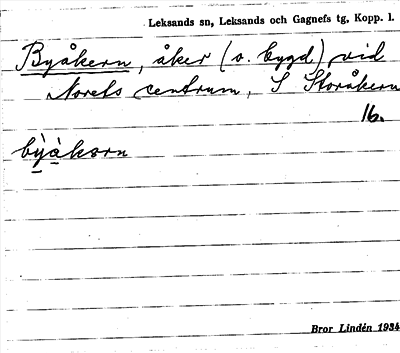 Leksands sn, Leksands och Gagnefs tg, Kopp. l.
Byåkern, åker (o. bygd) vid
Norets centrum, S Storåkern
16.
by̍åkorn
Bror Lindén 1934